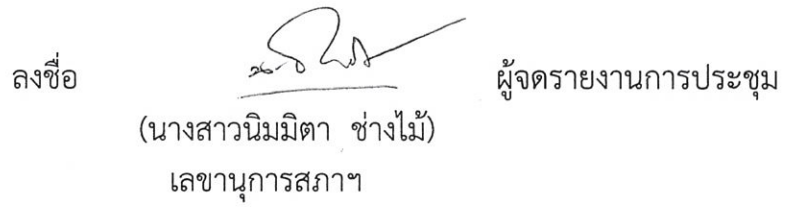 ลงชื่อ ผู้จดรายงานการประชุม
(นางสาวนิมมิตา ช่างไม้)
เลขานุการสภาฯ